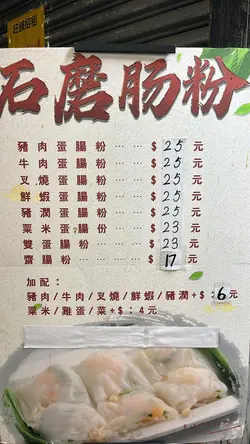 旺舖招租
石磨肠粉
豬肉蛋腸粉……$25元
牛肉蛋腸粉……$25元
叉燒蛋腸粉……$25元
鮮蝦蛋腸粉……$25元
豬潤蛋腸粉……$25元
粟米蛋腸份……$23元
雙蛋腸粉……$23元
齋腸粉……$17元
加配：
豬肉/牛肉/叉燒/鮮蝦/豬潤+$：6元
粟米/雞蛋/菜+$：4元